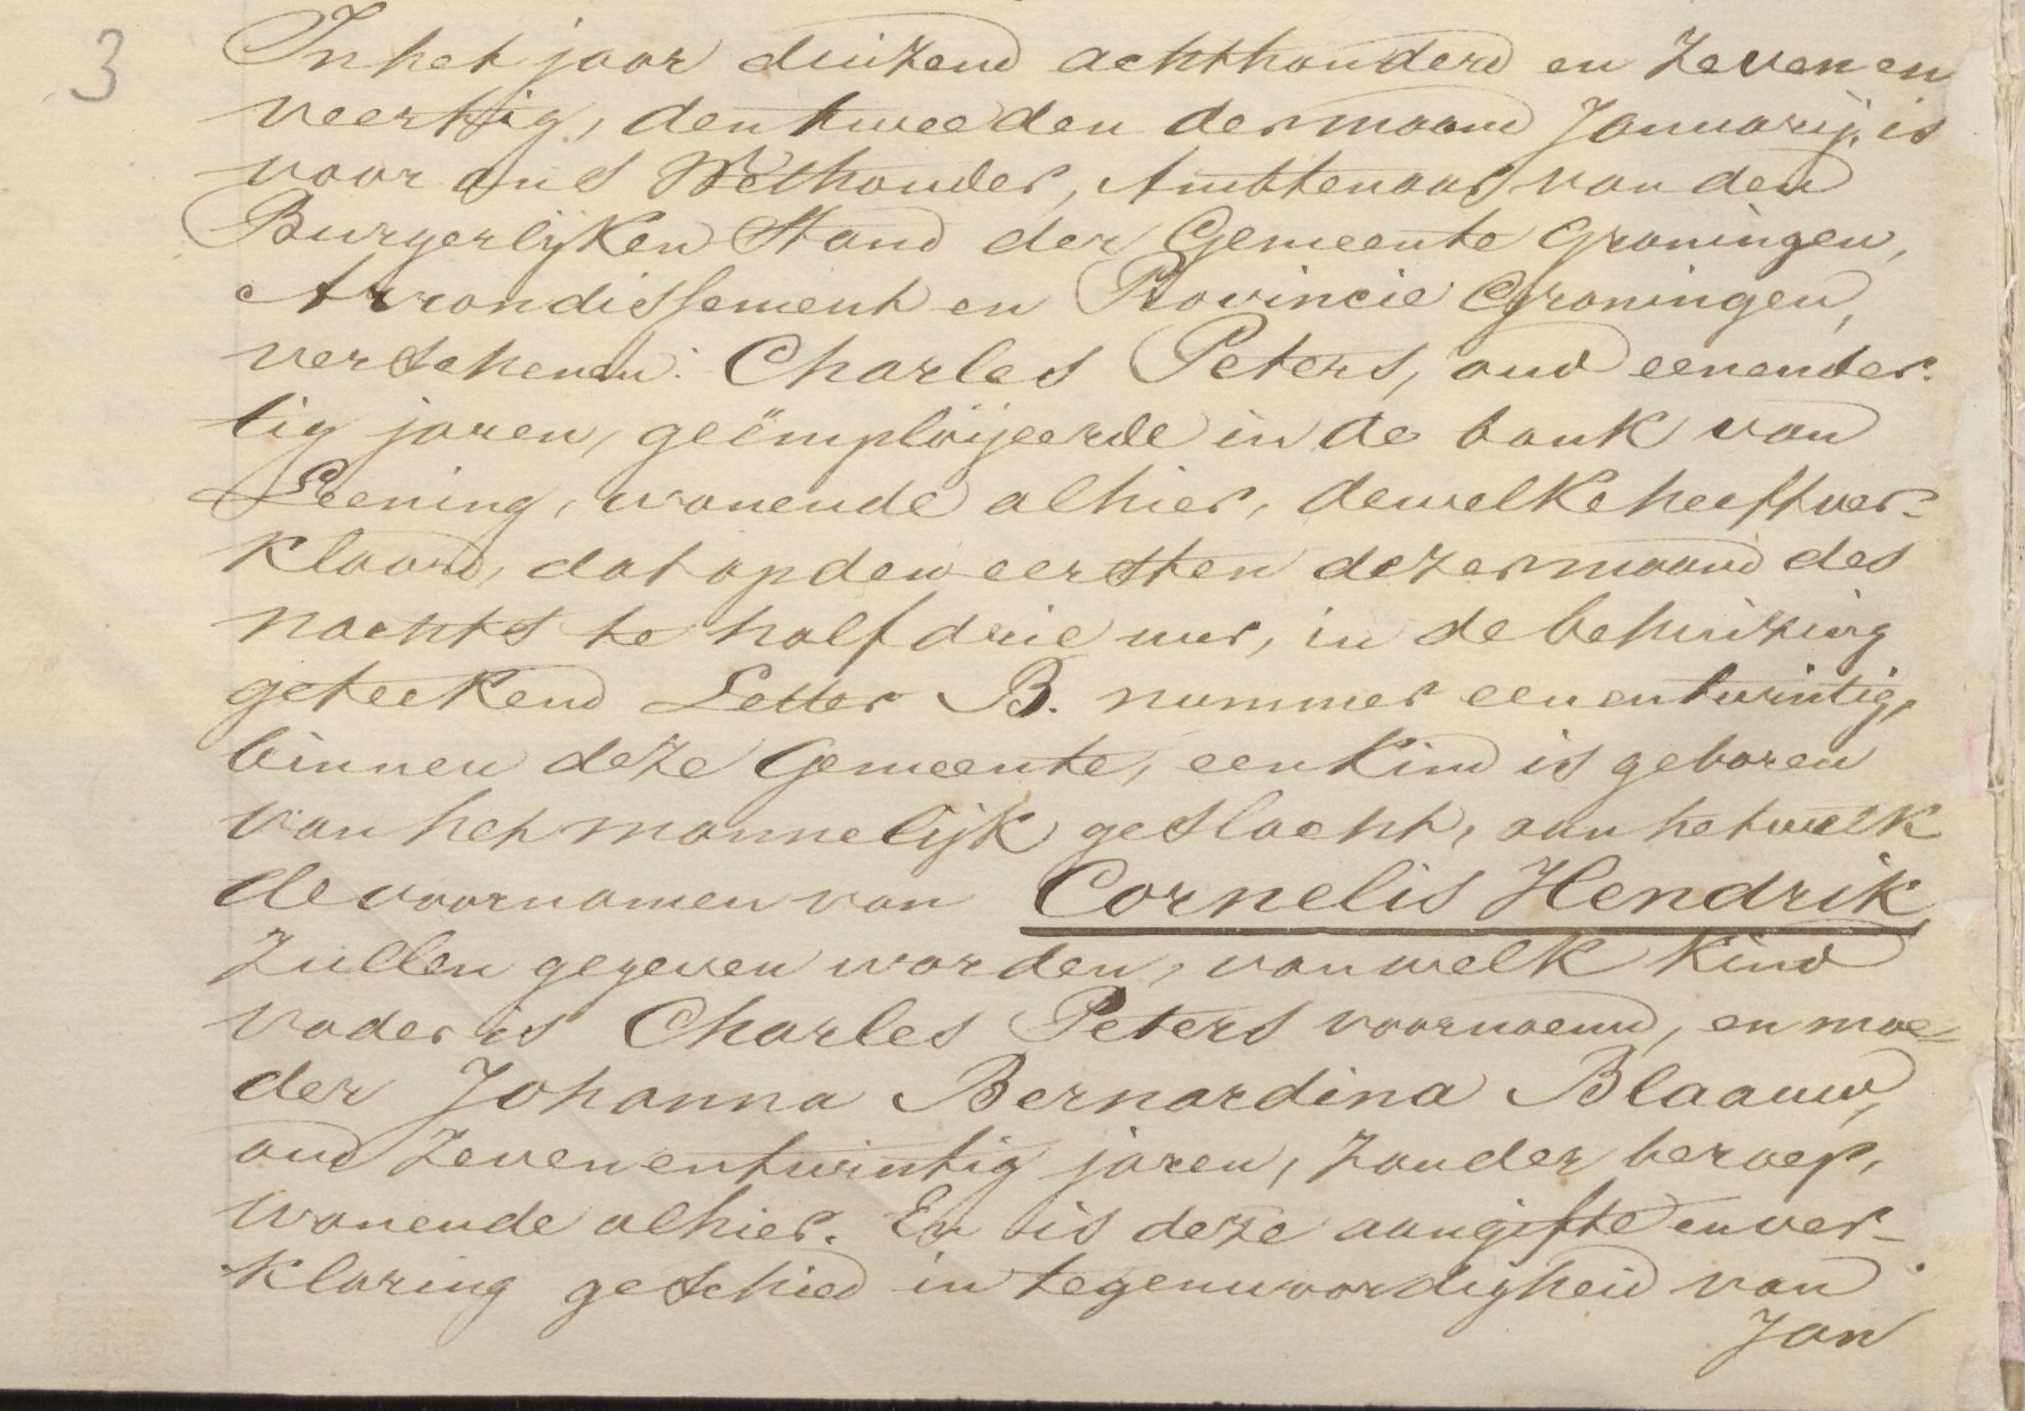 3
In het jaar duizend achthonderd en zeven en
veertig, den tweeden der maand Januarij, is
voor ons Wethouder, Ambtenaar van den
Burgerlijken Stand der Gemeente Groningen,
Arrondissement en Provincie Groningen,
verschenen: Charles Peters, oud eenender-
tig jaren, geëmploijeerde in de bank van
Leening, wonende alhier, dewelke heeft ver-
klaard, dat op den eersten dezer maand des
nachts te half drie uur, in de behuizing
geteekend Letter B. nummer eenentwintig,
binnen deze Gemeente, een kind is geboren
van het mannelijk geslacht, aan hetwelk
de voornamen van Cornelis Hendrik
zullen gegeven worden, van welk kind
vader is Charles Peters voornoemd, en moe-
der Johanna Bernardina Blaauw,
oud zevenentwintig jaren, zonder beroep,
wonende alhier. En is deze aangifte en ver-
klaring geschied in tegenwoordigheid van
Jan